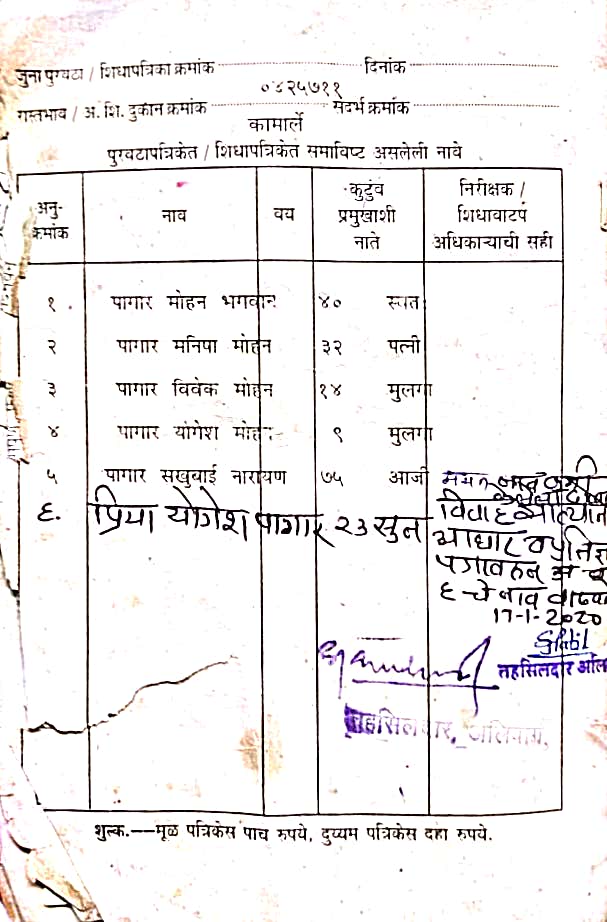 जुना पुरवठा / शिधापत्रिका क्रमांक दिनांक
०४२५७११
गस्तभाव / अ. शि. दुकान क्रमांक संदर्भ क्रमांक
कामार्ले
पुरवठापत्रिकेत / शिधापत्रिकेत समाविष्ट असलेली नावे
अनु-क्रमांक नाव वय कुटुंब प्रमुखाशी नाते निरीक्षक / शिधावाटप अधिकाऱ्याची सही
१ पागार मोहन भगवान ४० स्वत
२ पागार मनिषा मोहन ३२ पत्नी
३ पागार विवेक मोहन १४ मुलगा
४ पागार योगेश मोहन ९ मुलगा
५ पागार सखुबाई नारायण ७५ आजी
६. प्रिया योगेश पागार २३ सुन
विवाह
आधार व
६ चे नाव
17-1-2020
तहसिलदार
तहसिलदार, अलिबाग.
शुल्क.—मूळ पत्रिकेस पाच रुपये, दुय्यम पत्रिकेस दहा रुपये.